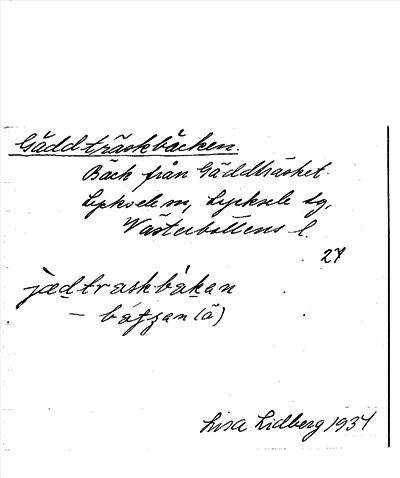 Gäddträskbäcken.
Bäck från Gäddträsket.
Lycksele sn, Lycksele tg,
Västerbottens l.
27
jædtraskbákan
– bátjan (ä)
Lisa Lidberg 1934